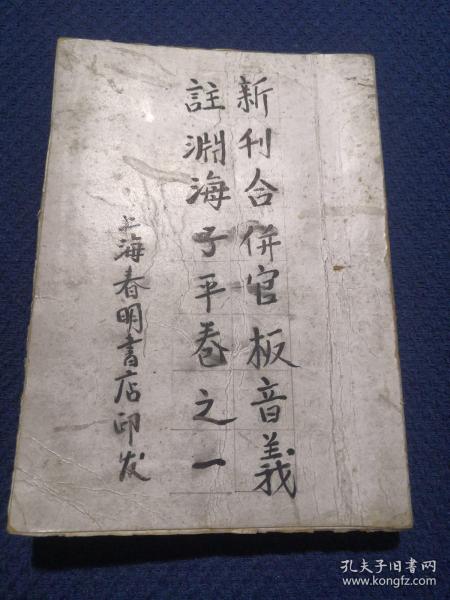 新刊合併官板音義
註淵海子平卷之一
上海春明書店印发
孔夫子旧书网
www.kongfz.com